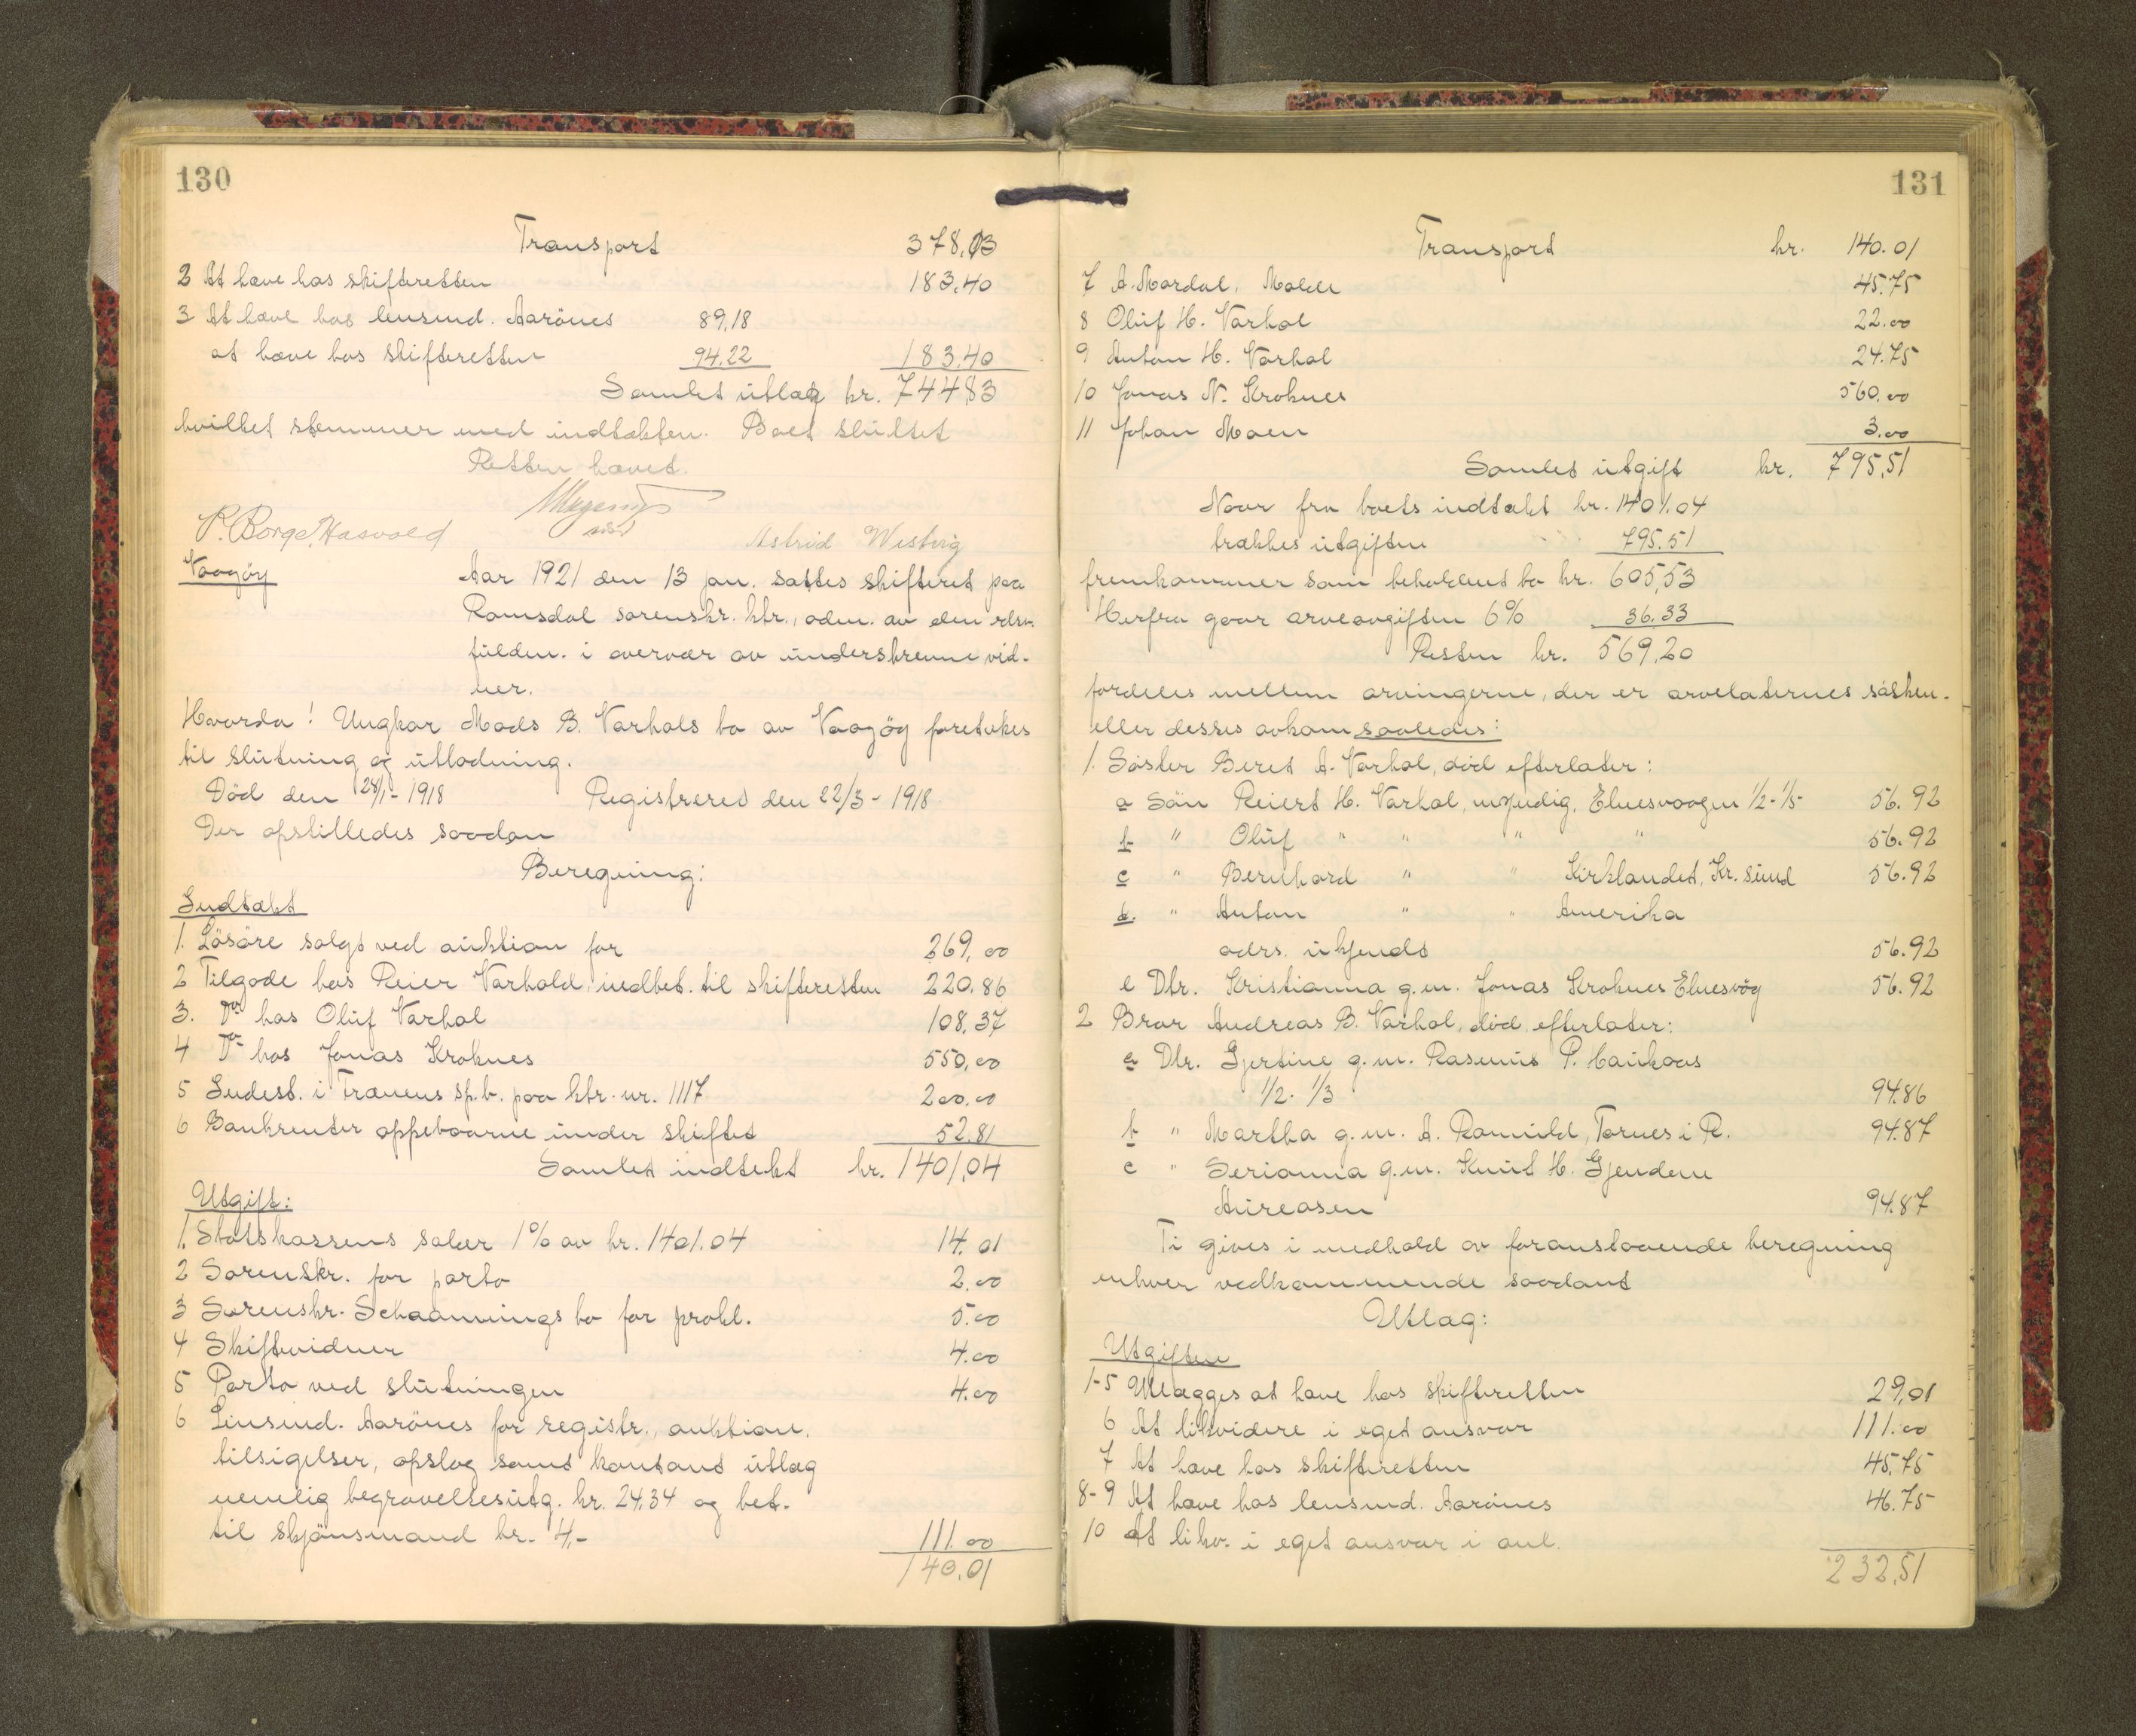 130
Transport 378,03
2 At hæve hos skifteretten 183,40
3 At hæve hos lensmd. Aarönes 89,18
at hæve hos skifteretten 94.22 183,40
Samlet utlæg kr. 744,83
hvilket stemmer med indtækten. Boet sluttet
Retten hævet.
P. Borge Hasvold Astrid Westvig
Vaagöy
Aar 1921 den 13 jan. sattes skifteret paa
Romsdal sorenskr. ktr., adm. av den
fuldm. i overvær av underskrevne vid-
ner.
Hvorda! Ungkar Mads B. Varhols bo av Vaagöy foretokes
til slutning og utlodning.
Död den 28/1 - 1918 Registreret den 22/3 - 1918
Der opstilledes saadan
Beregning:
Indtækt
1. Lösöre solgt ved auktion for 269,00
2 Tilgode hos Reier Varhold, indbet. til skifteretten 220.86
3. Do hos Oluf Varhol 108,37
4 Do hos Jonas Kroknes 550,00
5 Indest. i Fræneus sp.b. paa ktr. nr. 1117 200.00
6 Bankrenter oppebaarne under skiftet 52.81
Samlet indtekt kr. 1401,04
Utgift:
1. Statskassens salær 1% av kr. 1401.04 14.01
2 Sorenskr. for porto 2.00
3 Sorenskr. Schaannings bo for prokl. 5.00
4 Skiftevidner 4.00
5 Porto ved slutningen 4.00
6 Lensmd. Aarönes for registr., auktion,
tilsigelser, opslag samt kontant utlæg
nemlig begravelsesutg. kr. 24.34 og bet.
til skjönsmand kr. 4,- 111.00
140,01
131
Transport kr. 140.01
7 A. Mordal, Molde 45.75
8 Oluf H. Varhol 22.00
9 Anton H. Varhol 24.75
10 Jonas N. Kroknes 560.00
11 Johan Moen 3.00
Samlet utgift kr. 795,51
Naar fra boets indtækt kr. 1401.04
trækkes utgiften 795.51
fremkommer som beholdent bo kr. 605,53
Herfra gaar arveavgiften 6% 36.33
Resten kr. 569,20
fordeles mellem arvingerne, der er arveladernes sösken-
eller desses avkom saaledes:
1. Söster Beret A. Varhol, död efterlater:
a Sön Reiert H. Varhol, myndig, Elnesvaagen 1/2 - 1/5 56.92
b " Oluf " " " " 56.92
c " Bernhard " " Kirklandet, Kr. sund 56.92
d. " Anton " " Amerika
adrs. ukjendt 56.92
e Dtr. Kristianna g.m. Jonas Kroknes Elnesvög 56.92
2 Bror Andreas B. Varhol, död, efterlater:
a Dtr. Gjertine g.m. Rasmus P. Haukaas
1/2 . 1/3 94.86
b " Martha g.m. A. Romuld, Tornes i R. 94.87
c " Serianna g.m. Knut H. Gjendem
Aureosen 94.87
Ti gives i medhold av foranstaaende beregning
enhver vedkommende saadant
Utlæg:
Utgiften
1-5 Utlægges at hæve hos skifteretten 29,01
6 At likvidere i eget ansvar 111.00
7 At hæve hos skifteretten 45.75
8-9 At hæve hos lensmd. Aarönes 46.75
10 At likv. i eget ansvar i anl.
232,51